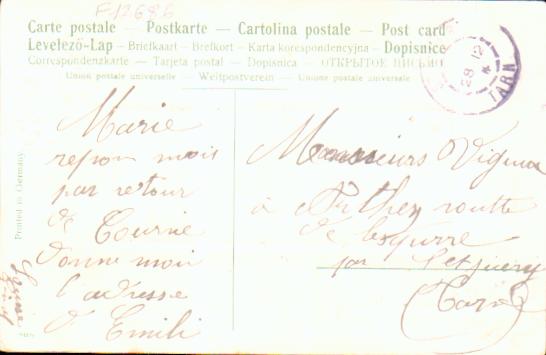 F12686
Carte postale — Postkarte — Cartolina postale — Post card
Levelező-Lap — Briefkaart — Brefkort — Karta korespondencyjna — Dopisnice
Correspondenzkarte — Tarjeta postal — Dopisnica — ОТКРЫТОЕ ПИСЬМО
Union postale universelle — Weltpostverein — Unione postale universale
28 12
TARN
Printed in Germany
Marie
repon mois
par retour
de Tournie
donne moi
l'adresse
d'Emili
Messieurs
à routte
de
par
(Tarn)